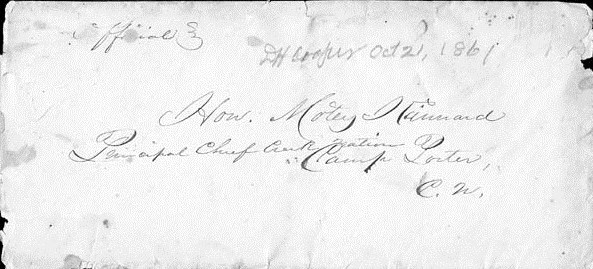 Official
DH Cooper Oct 21, 1861
Hon. Motey Kennard
Principal Chief Creek Nation
"Camp Porter,"
C. N.